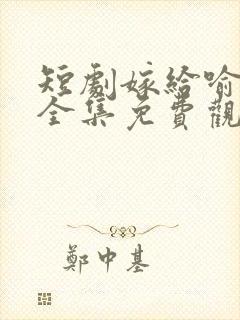 短劇嫁給喻
全集免費觀
鄭中基